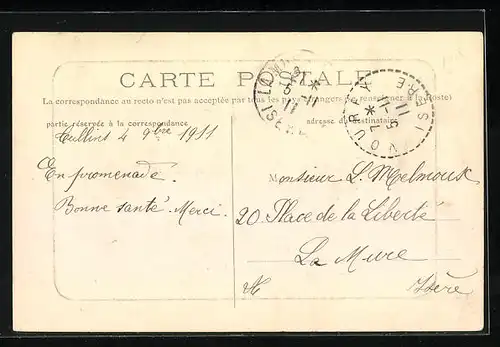 CARTE POSTALE
La correspondance au recto n'est pas acceptée par tous les pays étrangers (se renseigner à la poste)
partie réservée à la correspondance
adresse du destinataire
Tullins 4 9bre 1911
En promenade.
Bonne santé. Merci.
Monsieur L.
20 Place de la Liberté
La Mure
Isère
VOUREY
ISÈRE
7 *
5 -11
11